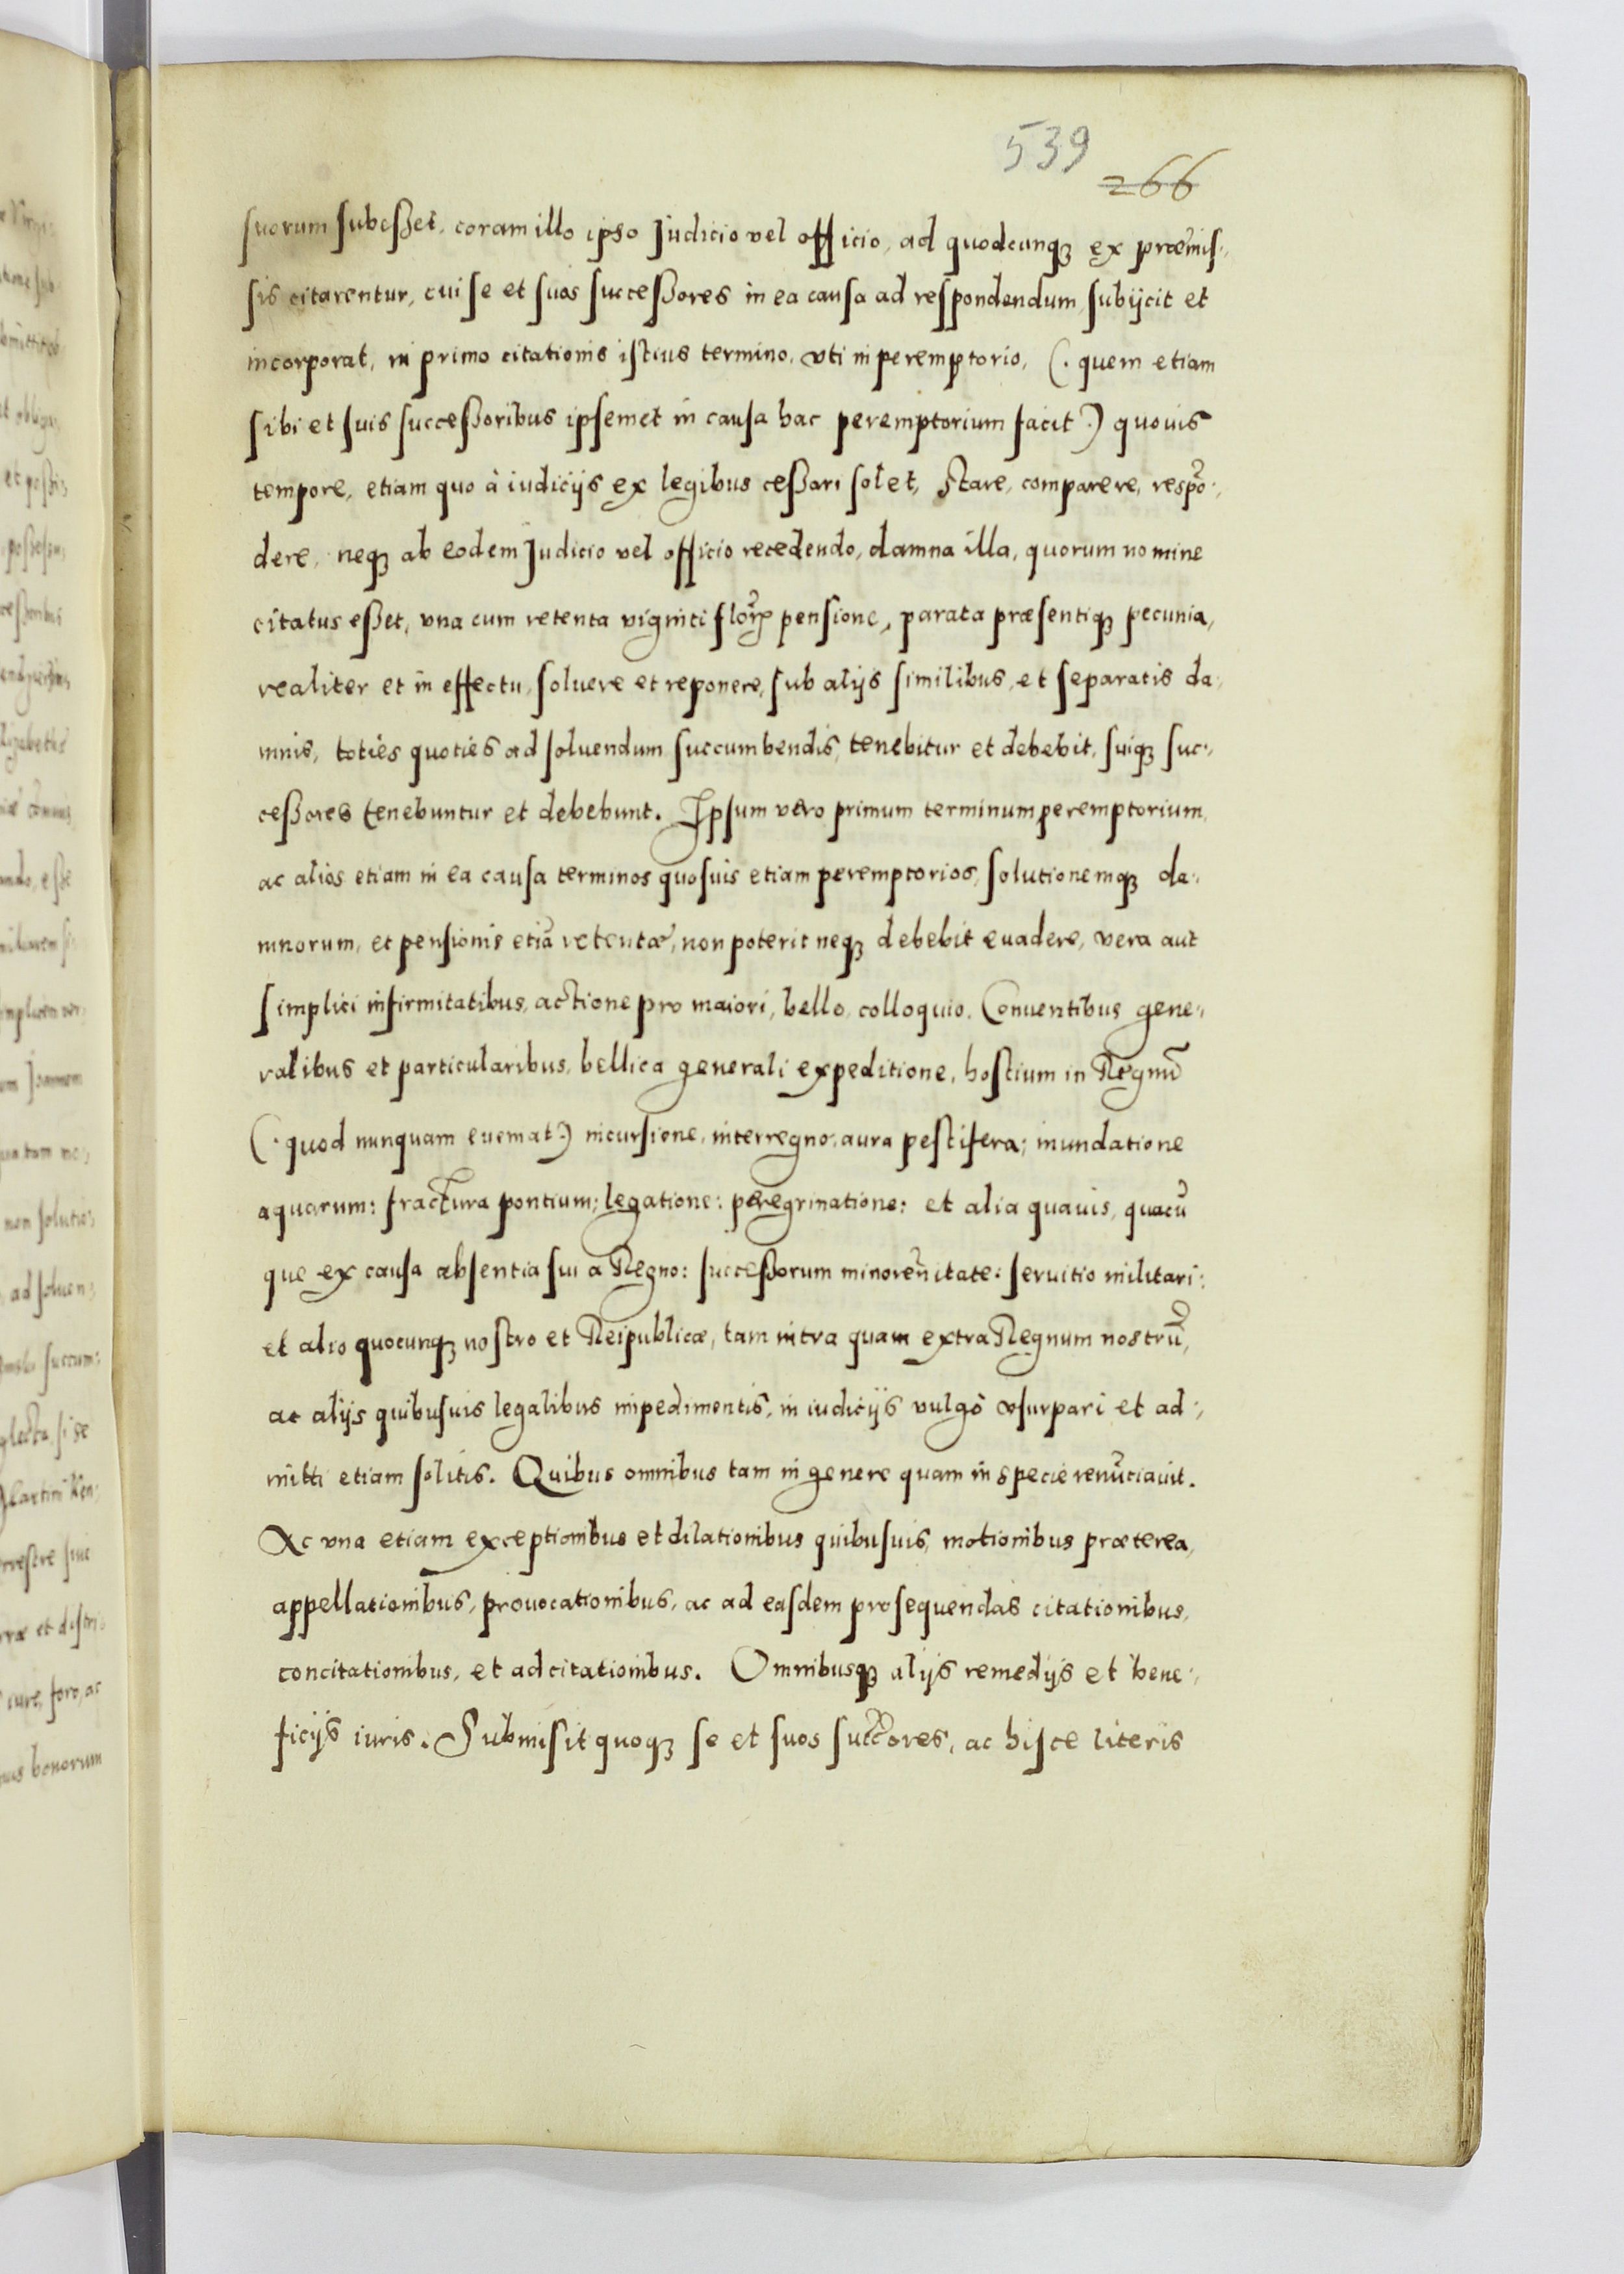 539
266
suorum subesset, coram illo ipso Judicio vel officio, ad quodcunqꝫ ex præmis-
sis citarentur, cui se et suos successores in ea causa ad respondendum subijcit et
incorporat, in primo citationis istius termino, vti in peremptorio, (. quem etiam
sibi et suis successoribus ipsemet in causa hac peremptorium facit .) quouis
tempore, etiam quo à iudicijs ex legibus cessari solet, Stare, comparere, respõ-
dere, neqꝫ ab eodem Judicio vel officio recedendo, damna illa, quorum nomine
citatus esset, vna cum retenta viginti florꝝ pensione, parata præsentiqꝫ pecunia,
realiter et in effectu, soluere et reponere, sub alijs similibus, et separatis da-
mnis, toties quoties ad soluendum succumbendis, tenebitur et debebit, suiqꝫ suc-
cessores tenebuntur et debebunt. Ipsum vero primum terminum peremptorium,
ac alios etiam in ea causa terminos quosuis etiam peremptorios, solutionemqꝫ da-
mnorum, et pensionis etiã retentæ, non poterit neqꝫ debebit euadere, vera aut
simplici infirmitatibus, actione pro maiori, bello, colloquio, Conuentibus gene-
ralibus et particularibus, bellica generali expeditione, hostium in Regnũ
(. quod nunquam eueniat .) incursione, interregno, aura pestifera; inundatione
aquarum: fractura pontium; legatione: peregrinatione: et alia quauis, quacũ
que ex causa absentia sui a Regno: successorum minorẽnitate: seruitio militari:
et alio quocunqꝫ nostro et Reipublicæ, tam intra quam extra Regnum nostrũ,
ac alijs quibusuis legalibus impedimentis, in iudicijs vulgò vsurpari et ad-
mitti etiam solitis. Quibus omnibus tam in genere quam in specie renũciauit.
Ac vna etiam exceptionibus et dilationibus quibusuis, motionibus præterea,
appellationibus, prouocationibus, ac ad easdem prosequendas citationibus,
concitationibus, et adcitationibus. Omnibusqꝫ alijs remedijs et bene-
ficijs iuris. Submisit quoqꝫ se et suos succores, ac hisce literis